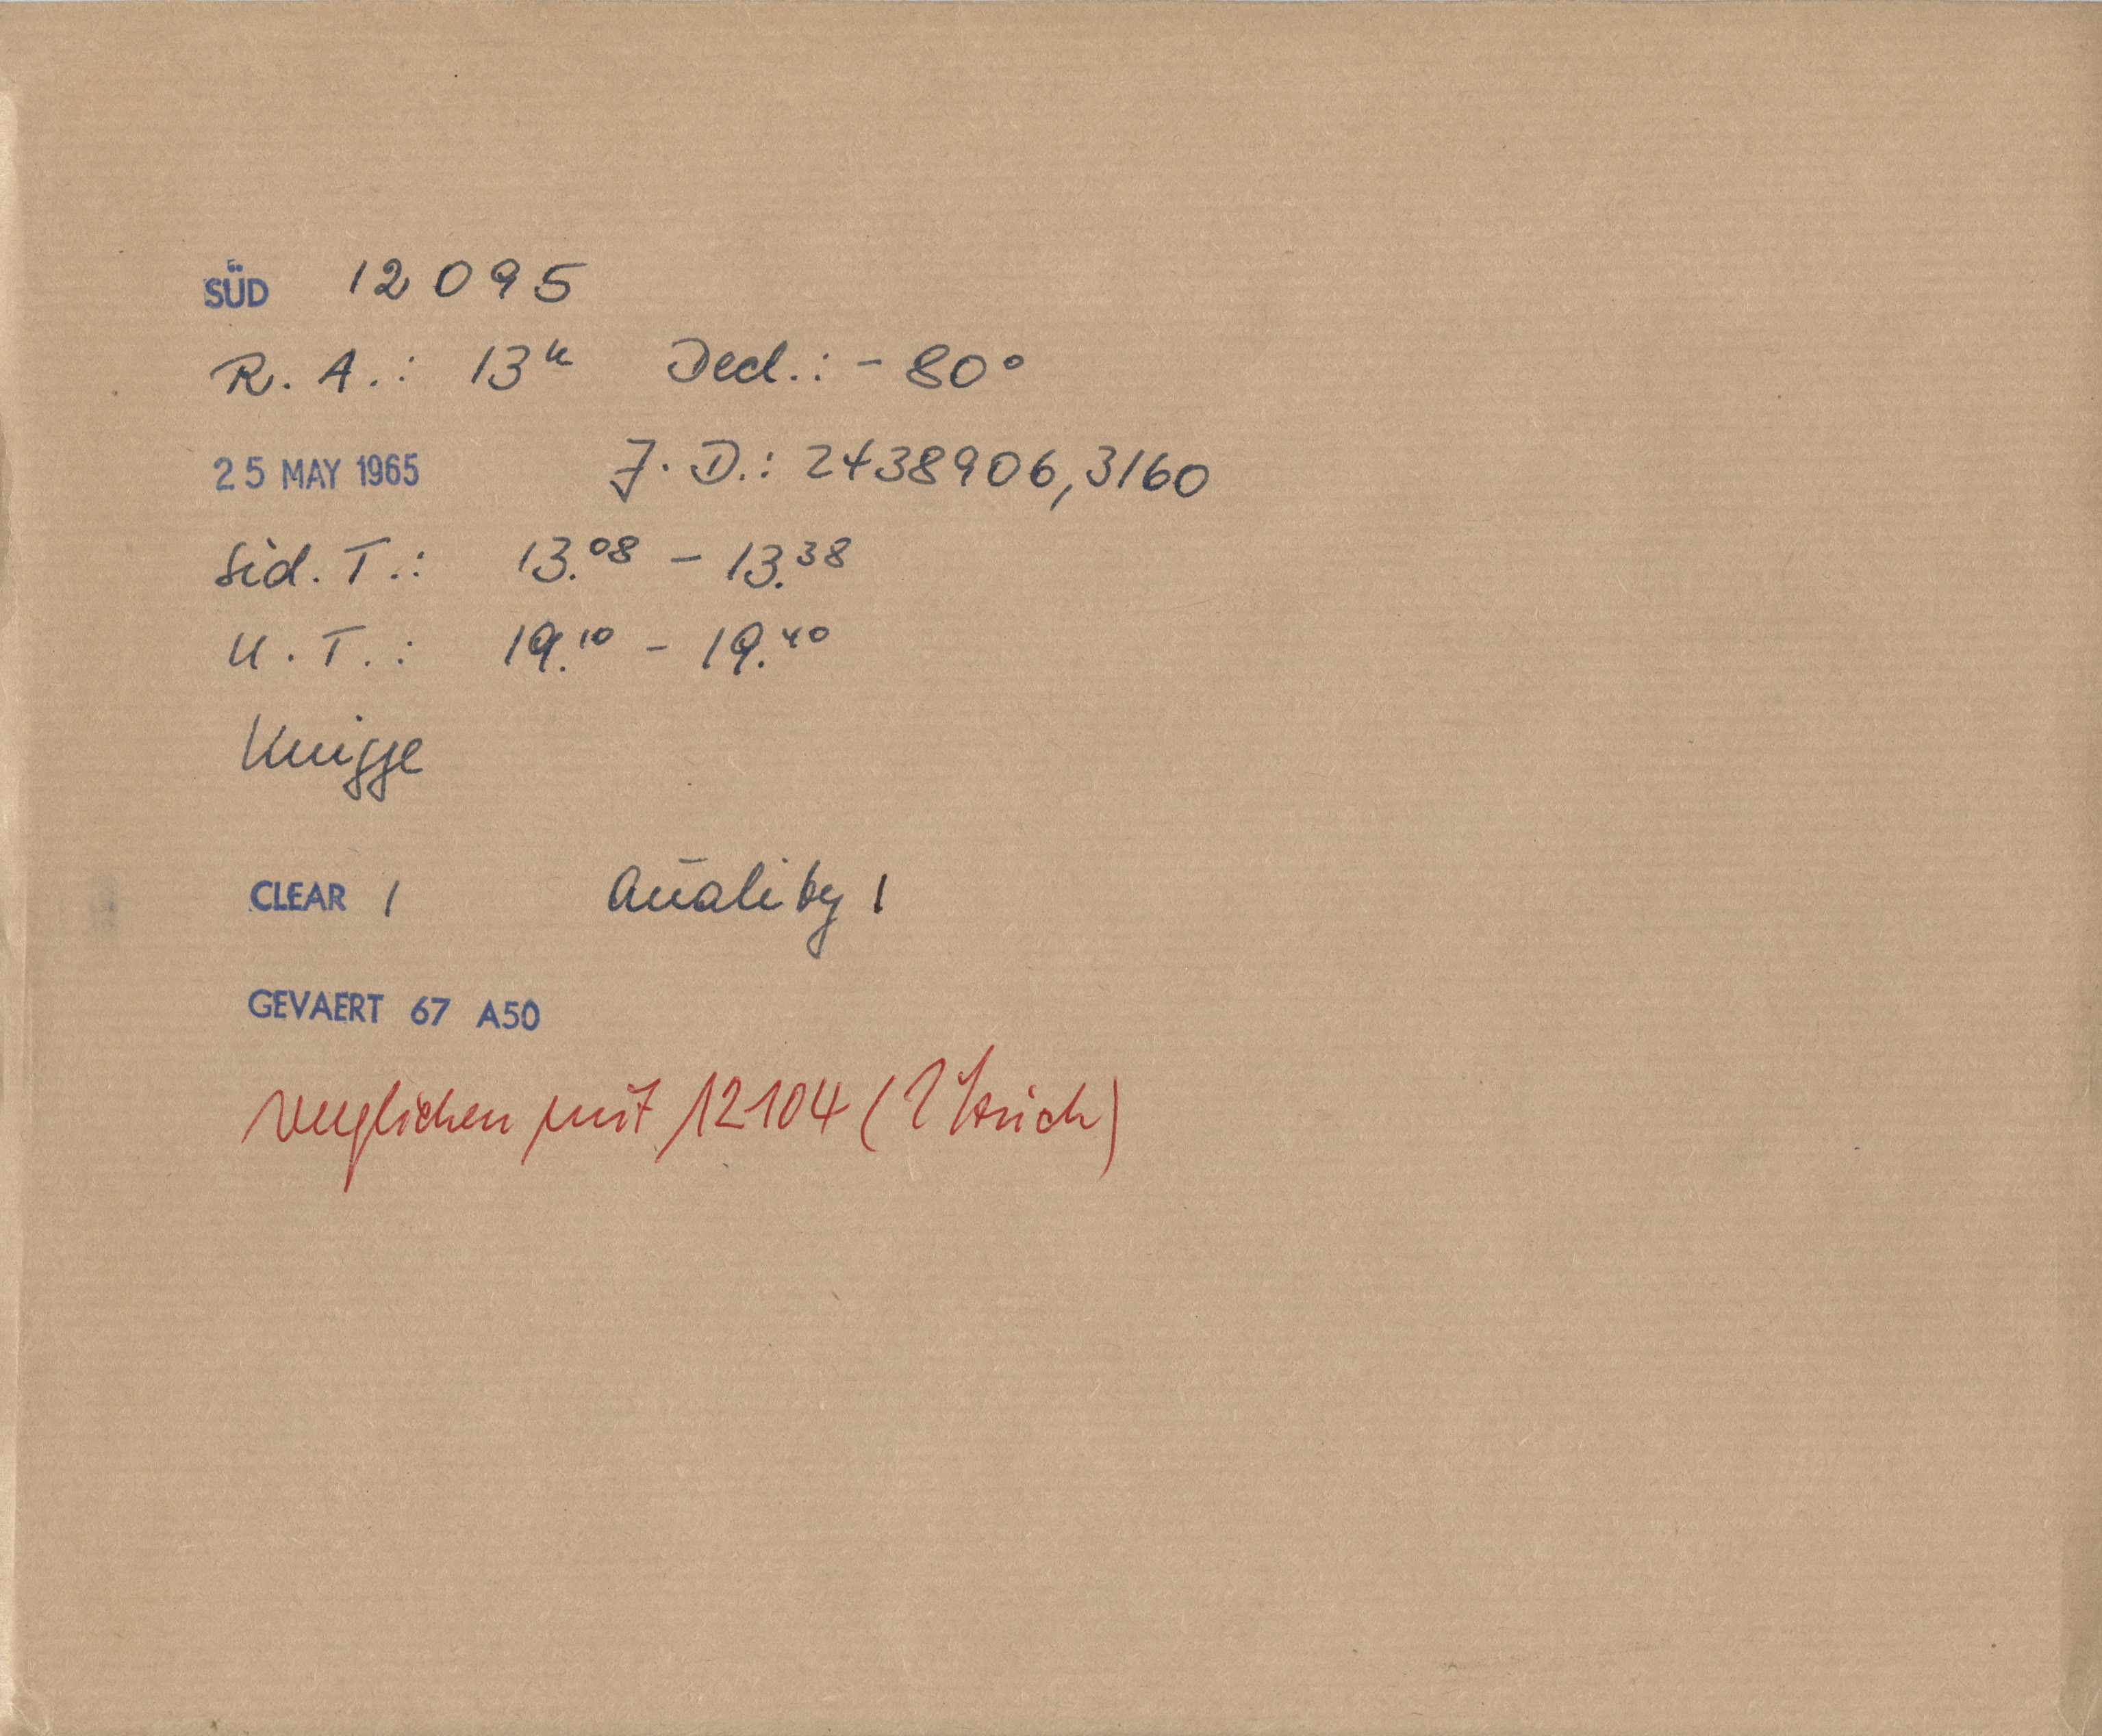 SÜD 12095
R. A.: 13ʰ Decl.: -80°
25 MAY 1965 J. D.: 2438906,3160
Sid. T.: 13.⁰⁸ - 13.³⁸
U. T.: 19.¹⁰ - 19.⁴⁰
Knigge
CLEAR 1 Quality 1
GEVAERT 67 A50
verglichen mit 12104 (